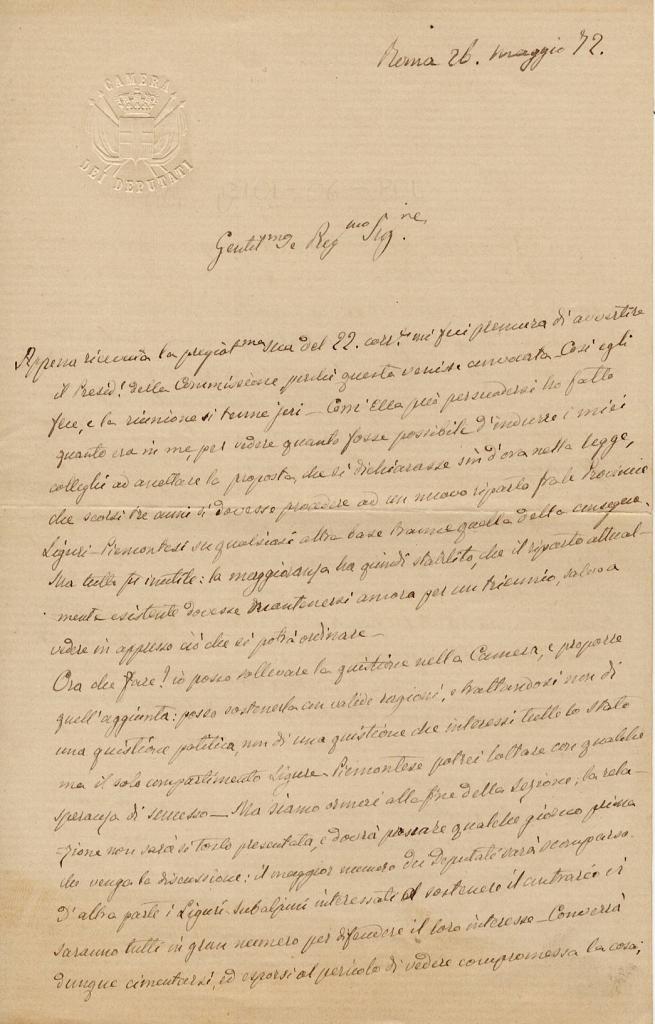 Roma 26. maggio 72.
CAMERA
DEI DEPUTATI
Gentilmo e Regmo Sigre.
Appena ricevuta la pregiatma sua del 22. corr.te mi feci premura di avvertire
il Presid.e della Commissione, perché questa venisse convocata - Così egli
fece, e la riunione si tenne jeri - Com' Ella può persuadersi ho fatto
quanto era in me, per vedere quanto fosse possibile d'indurre i miei
colleghi ad accettare la proposta, che si dichiarasse sin d'ora nella legge,
che scorsi tre anni si dovesse procedere ad un nuovo riparto fra le Provincie
Liguri-Piemontesi su qualsiasi altra base tranne quella della consegna.
Ma tutto fu inutile: la maggioranza ha quindi stabilito, che il riparto attual-
mente esistente dovesse mantenersi ancora per un triennio, salvo a
vedere in appresso ciò che si potrà ordinare -
Ora che fare? io posso sollevare la quistione nella Camera, e proporre
quell'aggiunta: posso sostenerla con valide ragioni, e trattandosi non di
una quistione politica, non di una quistione che interessi tutto lo stato
ma il solo compartimento Ligure-Piemontese potrei lottare con qualche
speranza di successo - Ma siamo ormai alla fine della Sezione; la rela-
zione non sarà sì tosto presentata, e dovrà passare qualche giorno prima
che venga la discussione: il maggior numero dei Deputati sarà scomparso.
D'altra parte i Liguri-subalpini interessati a sostenere il contrario vi
saranno tutti in gran numero per difendere il loro interesse - Converrà
dunque cimentarsi, ed esporsi al pericolo di vedere compromessa la cosa;